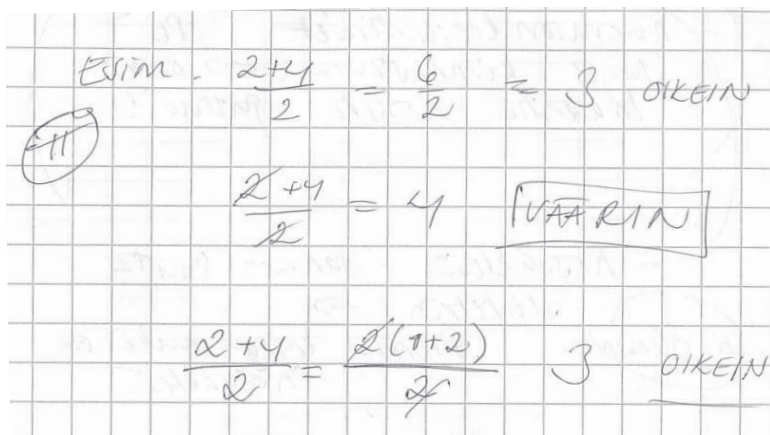 ESIM. (2+4)/2 = 6/2 = 3 OIKEIN
(2+4)/2 = 4 VÄÄRIN
(2+4)/2 = 2(1+2)/2 3 OIKEIN